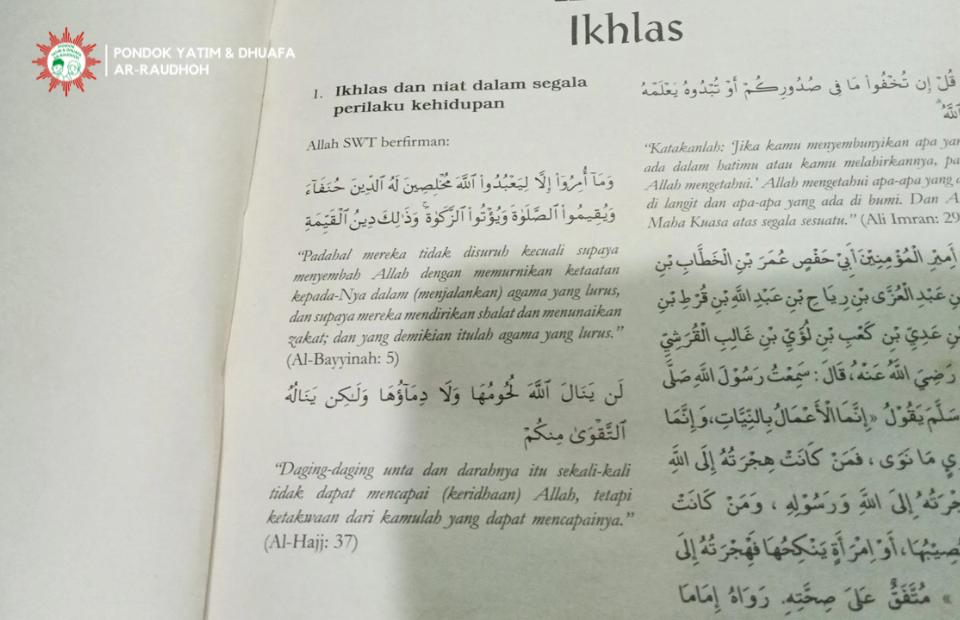 PONDOK YATIM & DHUAFA
AR-RAUDHOH
Ikhlas
1. Ikhlas dan niat dalam segala
perilaku kehidupan
Allah SWT berfirman:
وَمَآ أُمِرُوٓا۟ إِلَّا لِيَعْبُدُوا۟ ٱللَّهَ مُخْلِصِينَ لَهُ ٱلدِّينَ حُنَفَآءَ
وَيُقِيمُوا۟ ٱلصَّلَوٰةَ وَيُؤْتُوا۟ ٱلزَّكَوٰةَ ۚ وَذَٰلِكَ دِينُ ٱلْقَيِّمَةِ
“Padahal mereka tidak disuruh kecuali supaya
menyembah Allah dengan memurnikan ketaatan
kepada-Nya dalam (menjalankan) agama yang lurus,
dan supaya mereka mendirikan shalat dan menunaikan
zakat; dan yang demikian itulah agama yang lurus.”
(Al-Bayyinah: 5)
لَن يَنَالَ ٱللَّهَ لُحُومُهَا وَلَا دِمَآؤُهَا وَلَٰكِن يَنَالُهُ
ٱلتَّقْوَىٰ مِنكُمْ
“Daging-daging unta dan darahnya itu sekali-kali
tidak dapat mencapai (keridhaan) Allah, tetapi
ketakwaan dari kamulah yang dapat mencapainya.”
(Al-Hajj: 37)
قُلْ إِن تُخْفُوا۟ مَا فِى صُدُورِكُمْ أَوْ تُبْدُوهُ يَعْلَمْهُ
ٱللَّهُ ۗ
“Katakanlah: ‘Jika kamu menyembunyikan apa
ada dalam hatimu atau kamu melahirkannya,
Allah mengetahui.’ Allah mengetahui apa-apa yang
di langit dan apa-apa yang ada di bumi. Dan
Maha Kuasa atas segala sesuatu.” (Ali Imran: 29
أَمِيْرِ الْمُؤْمِنِيْنَ أَبِيْ حَفْصٍ عُمَرَ بْنِ الْخَطَّابِ بْنِ
بْنِ عَبْدِ الْعُزَّى بْنِ رِيَاحِ بْنِ عَبْدِ اللَّهِ بْنِ قُرْطِ بْنِ
بْنِ عَدِيِّ بْنِ كَعْبِ بْنِ لُؤَيِّ بْنِ غَالِبٍ الْقُرَشِيِّ
رَضِيَ اللَّهُ عَنْهُ، قَالَ: سَمِعْتُ رَسُوْلَ اللَّهِ صَلَّى
سَلَّمَ يَقُوْلُ «إِنَّمَا الْأَعْمَالُ بِالنِّيَّاتِ، وَإِنَّمَا
مَا نَوَى، فَمَنْ كَانَتْ هِجْرَتُهُ إِلَى اللَّهِ
إِلَى اللَّهِ وَرَسُوْلِهِ، وَمَنْ كَانَتْ
أَوِ امْرَأَةٍ يَنْكِحُهَا فَهِجْرَتُهُ إِلَى
» مُتَّفَقٌ عَلَى صِحَّتِهِ. رَوَاهُ إِمَامَا